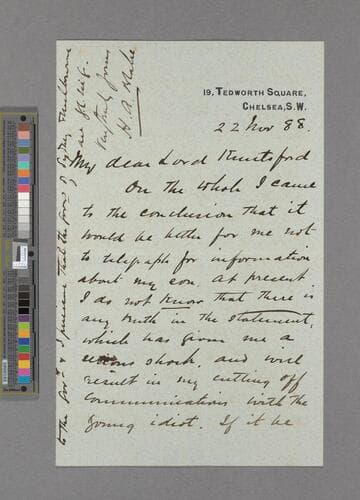 19, TEDWORTH SQUARE,
CHELSEA, S.W.
22 Nov 88.
My dear Lord Knutsford
On the whole I came
to the conclusion that it
would be better for me not
to telegraph for information
about my son. At present
I do not know that there is
any truth in the statement,
which has given me a
serious shock, and will
result in my cutting off
communications with the
young idiot. If it be
to the Gov.t & I presume that the Gov.t of Sydney, Melbourne
are
Very truly yours
H. A. Blake